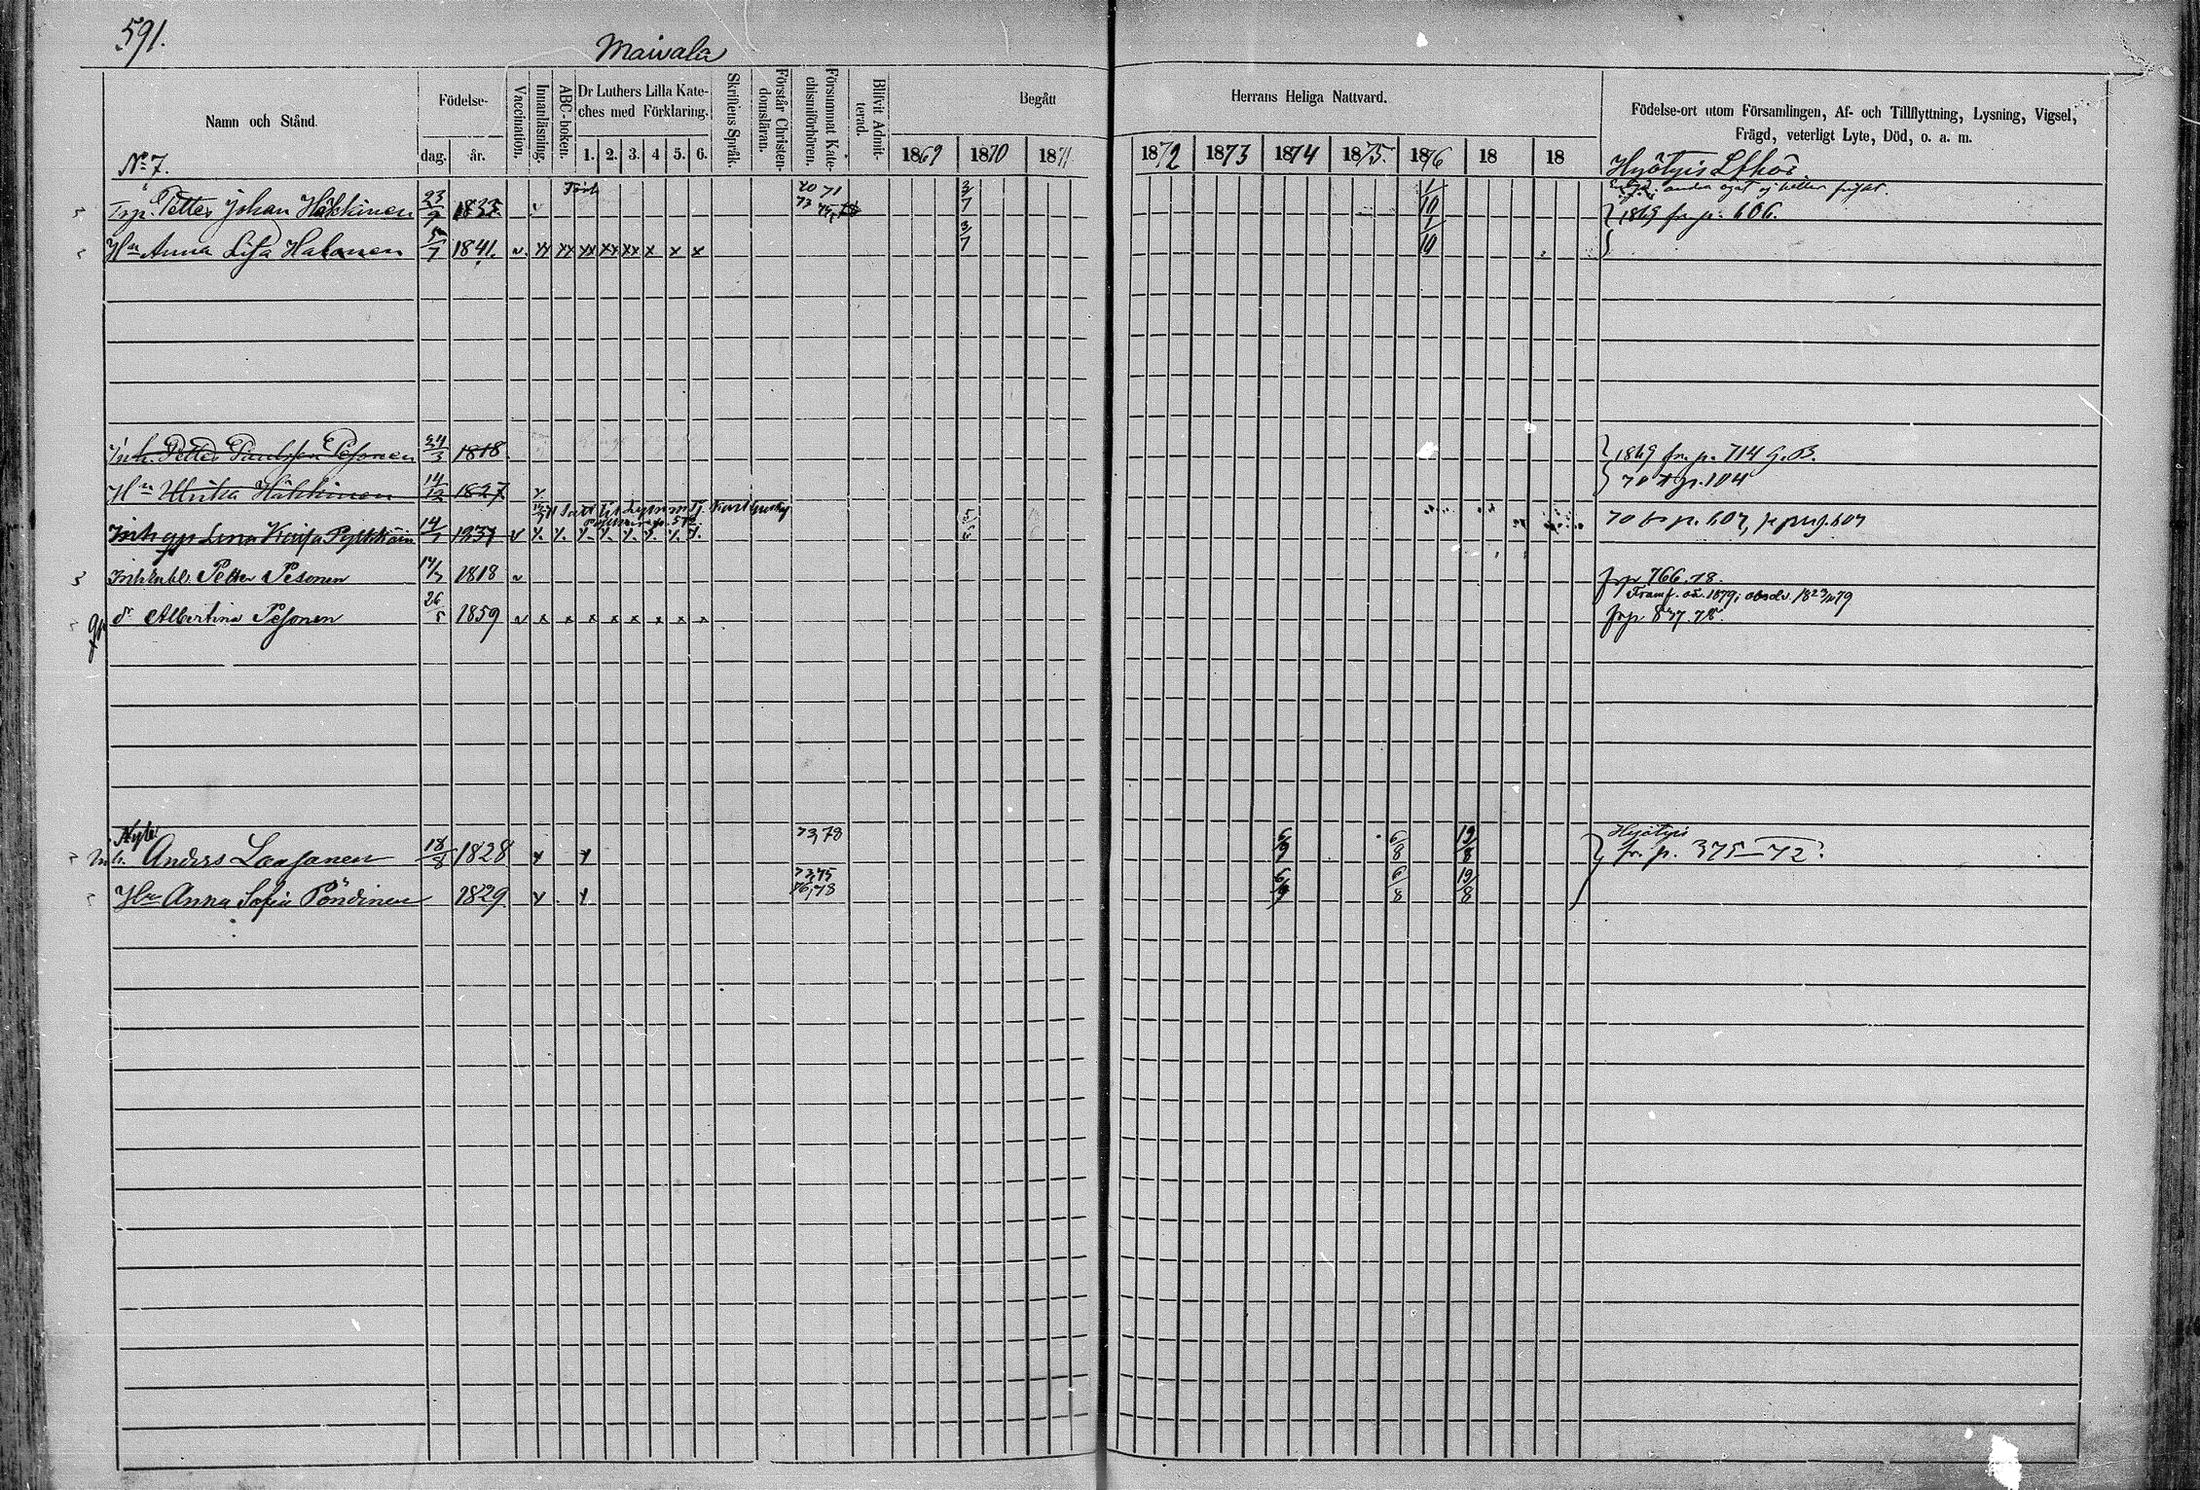 591.
Maivala
Namn och Stånd.
Födelse-
dag. år.
Vaccination.
Innanläsning.
ABC-boken.
Dr Luthers Lilla Kate-
ches med Förklaring.
1. 2. 3. 4 5. 6.
Skriftens Språk.
Förstår Christen-
domsläran.
Försummat Kate-
chismiförhören.
Blifvit Admit-
terad.
Begått
1869 1870 1871
Herrans Heliga Nattvard.
1872 1873 1874 1875 1876 18 18
Födelse-ort utom Församlingen, Af- och Tillflyttning, Lysning, Vigsel,
Frägd, veterligt Lyte, Död, o. a. m.
No 7.
Petter Johan Häkkinen 23/9 1835 70 71 73 3/7 1/10 1869 fr. p. 606.
Hu Anna Lisa Halonen 5/7 1841. v. xx xx xx xx xx x x x 3/7 1/10
Inh. Petter Paulsson Pesonen 24/3 1818 1869 fr. p. 714 G.B.
Hu Ulrika Häkkinen 14/12 1827 70 t p. 104
Lena Kaisa Pylkkäin 14/1 1837 70 fr p. 607
Petter Pesonen 14/3 1818 v frp 766. 78.
dr Albertina Pesonen 26/5 1859 v x x x x x x x x frp 837. 78.
Inh. Anders Laasanen 18/8 1828 73,78 6/9 6/8 19/8 Hyötyis fr. p. 375–72.
Hu Anna Sofia Pöndinen 1829 73,75 76,78 6/9 6/8 19/8